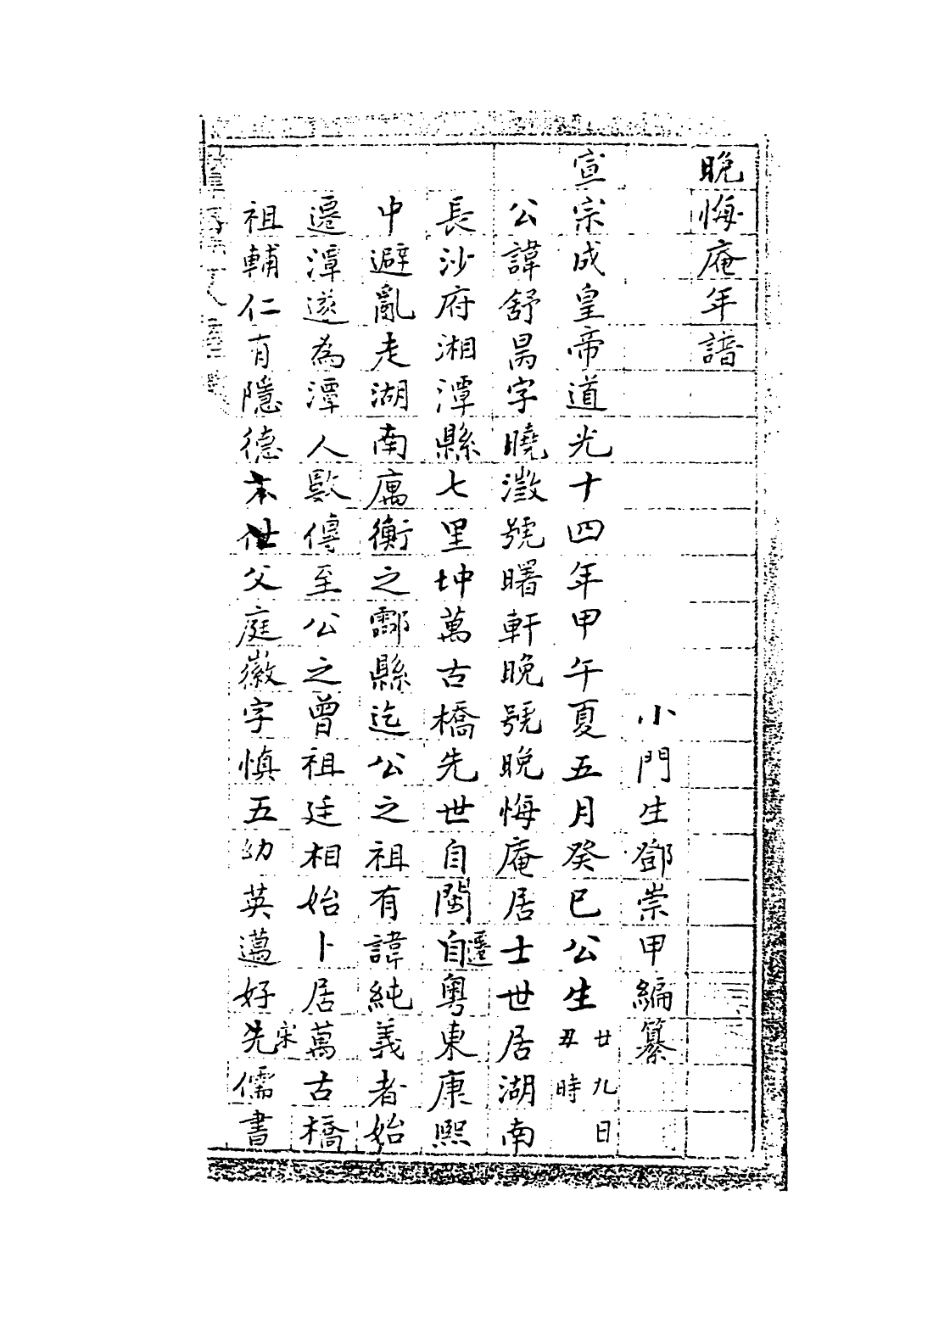 晚悔庵年譜
小門生鄧崇甲編纂
宣宗成皇帝道光十四年甲午夏五月癸巳公生廿九日丑時
公諱舒昺字曉澂號曙軒晚號晚悔庵居士世居湖南
長沙府湘潭縣七里坤萬古橋先世自閩遷自粵東康熙
中避亂走湖南廡衡之酃縣迄公之祖有諱純義者始
遷潭遂為潭人數傳至公之曾祖廷相始卜居萬古橋
祖輔仁有隱德本世父庭徽字慎五幼英邁好宋先儒書